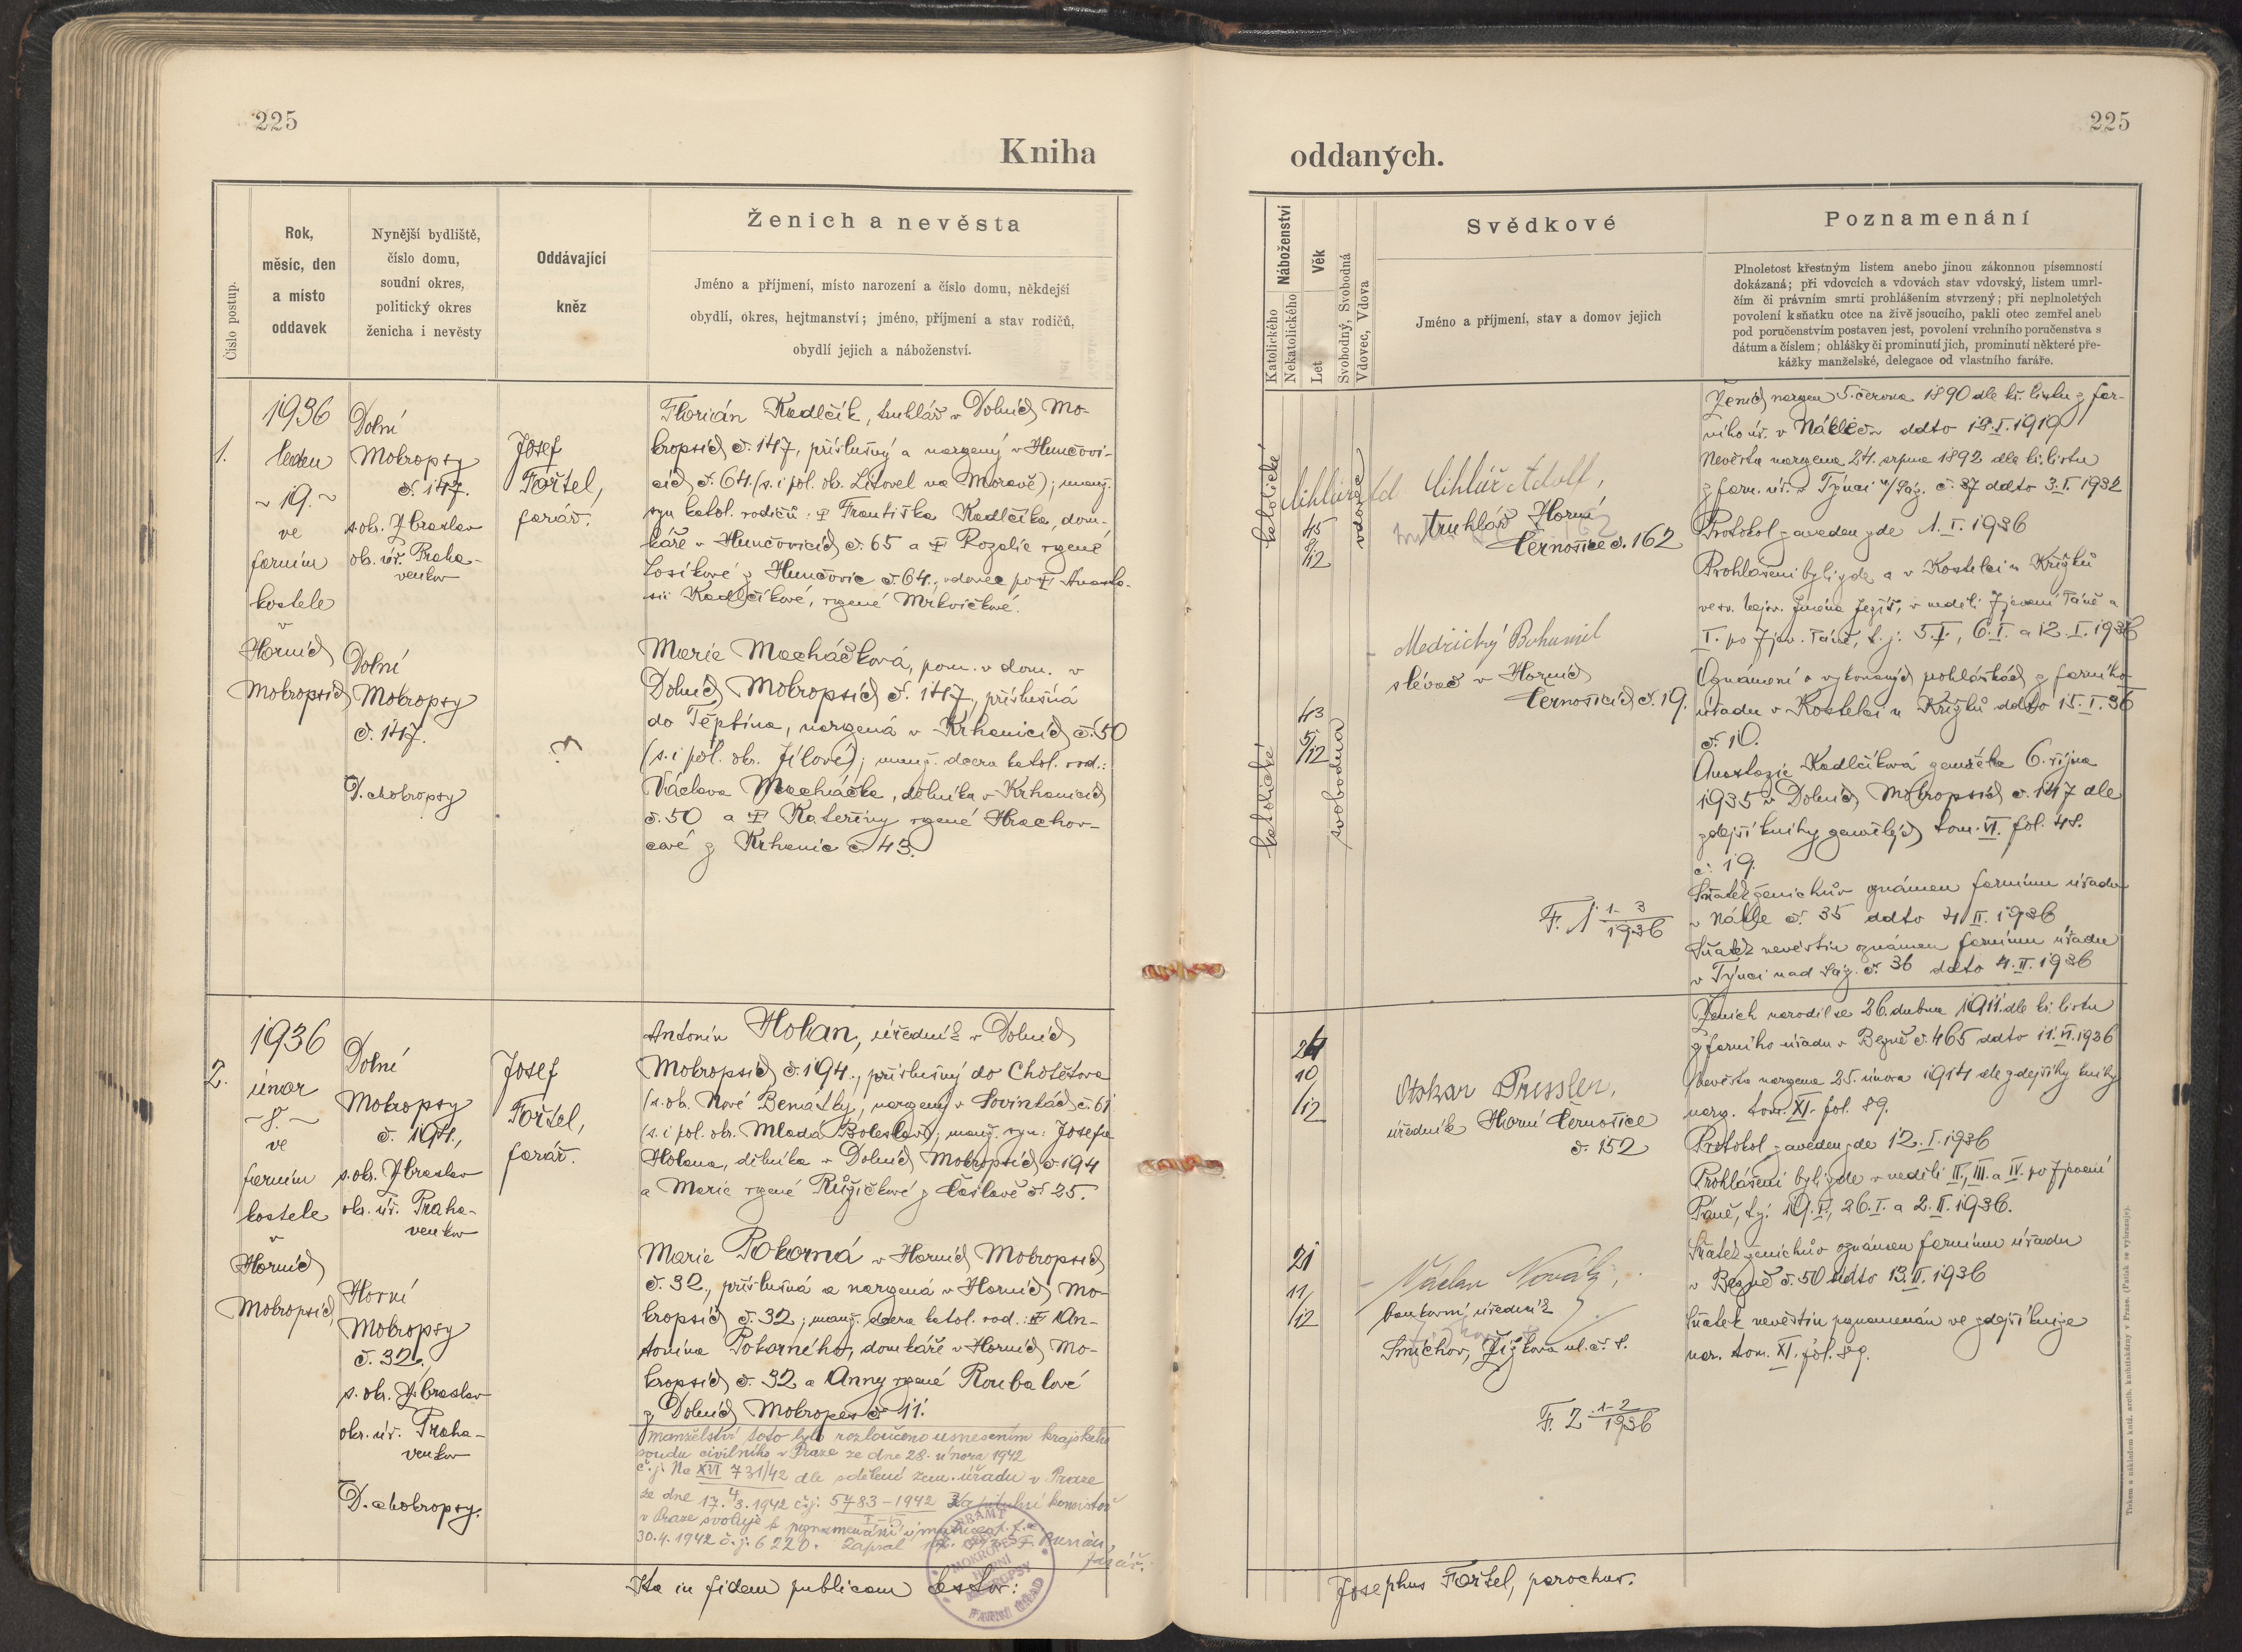 225
Kniha
Číslo postup.
Rok,
měsíc, den
a místo
oddavek
Nynější bydliště,
číslo domu,
soudní okres,
politický okres
ženicha i nevěsty
Oddávající
kněz
Ženich a nevěsta
Jméno a příjmení, místo narození a číslo domu, někdejší
obydlí, okres, hejtmanství; jméno, příjmení a stav rodičů,
obydlí jejich a náboženství.
1.
1936
leden
~ 19. ~
ve
farním
kostele
v
Horních
Mokropsích
Dolní
Mokropsy
č. 147.
s. ok. Zbraslav
ok. úř. Praha-
venkov
Dolní
Mokropsy
č. 147.
D. Mokropsy
Josef
Fořtel,
farář.
Florián Kadlčík, truhlář v Dolních Mo-
kropsích č. 147, příslušný a narozený v Hunčovi-
cích č. 64 (s. i pol. ok. Litovel na Moravě); manž.
syn katol. rodičů: † Františka Kadlčíka, dom-
káře v Hunčovicích č. 65 a † Rozalie rozené
Losíkové z Hunčovic č. 64., vdovec po † Anasta-
sii Kadlčíkové, rozené Mrkvičkové.
Marie Macháčková, pom. v dom. v
Dolních Mokropsích č. 147, příslušná
do Těptína, narozená v Krhanicích č. 50
(s. i pol. okr. Jílové); manž. dcera katol. rod.:
Václava Macháčka, dělníka v Krhanicích
č. 50 a † Kateřiny rozené Hrachov-
cové z Krhanic č. 43.
2.
1936
únor
~ 8. ~
ve
farním
kostele
v
Horních
Mokropsích
Dolní
Mokropsy
č. 194.,
s. ok. Zbraslav
ok. úř. Praha-
venkov
Horní
Mokropsy
č. 32.
s. ok. Zbraslav
okr. úř. Praha-
venkov
D. Mokropsy.
Josef
Fořtel,
farář.
Antonín Holan, úředník v Dolních
Mokropsích č. 194., příslušný do Chotětova
(s. ok. Nové Benátky, narozený v Sovinkách č. 61
(s. i pol. okr. Mladá Boleslav); manž. syn: Josefa
Holana, dělníka v Dolních Mokropsích č. 194
a Marie rozené Růžičkové z Čáslavě č. 25.
Marie Pokorná v Horních Mokropsích
č. 32., příslušná a narozená v Horních Mo-
kropsích č. 32; manž. dcera katol. rod.: † An-
tonína Pokorného, domkáře v Horních Mo-
kropsích č. 32 a Anny rozené Roubalové
z Dolních Mokropes č. 11.
Manželství toto bylo rozloučeno usnesením krajského
soudu civilního v Praze ze dne 28. února 1942
č. j. Nc XVI 731/42 dle sdělení zem. úřadu v Praze
ze dne 17. 3. 1942 č. j. 5783-1942 Kapitulní konsistoř
v Praze svoluje k poznamenání v matrice
30.4.1942 č. j. 6220. Zapsal
farář.
Ita in fidem publicam testor:
225
oddaných.
Náboženství
Katolického
Nekatolického
Věk
Let
Svobodný, Svobodná
Vdovec, Vdova
Svědkové
Jméno a příjmení, stav a domov jejich
Poznamenání
Plnoletost křestným listem anebo jinou zákonnou písemností
dokázaná; při vdovcích a vdovách stav vdovský, listem úmrt-
čím či právním smrti prohlášením stvrzený; při neplnoletých
povolení k sňatku otce na živě jsoucího, pakli otec zemřel aneb
pod poručenstvím postaven jest, povolení vrchního poručenstva s
dátum a číslem; ohlášky či prominutí jich, prominutí některé pře-
kážky manželské, delegace od vlastního faráře.
katolické
45
8/12
vdovec
Cihlář Adolf,
truhlář Horní
Černošice č. 162
katolické
43
5/12
svobodná
Medřický Bohumil
slévač v Horních
Černošicích č. 19.
F. 1 1-3/1936
Ženich narozen 5. června 1890 dle kř. listu z far-
ního úř. v Nákle ddto 18. I. 1919
Nevěsta narozena 24. srpna 1892 dle kř. listu
z farn. úř. v Týnci n/Sáz. č. 37 ddto 3. I. 1932
Protokol zaveden zde 1. I. 1936
Prohlášení byli zde a v Kostelci u Křížků
ve sv. Nejsv. Jména Ježíš, v neděli Zjevení Páně a
I. po Zjev. Páně, t. j. 5. I., 6. I. a 12. I. 1936
Oznámení o vykonaných ohláškách z farního
úřadu v Kostelci u Křížků ddto 15. I. 36
č. 10.
Anastazie Kadlčíková zemřela 6. října
1935 v Dolních Mokropsích č. 147 dle
zdejší knihy zemřelých tom. VI. fol. 48.
č. 19.
Sňatek ženichův oznámen farnímu úřadu
v Nákle č. 35 ddto 4. II. 1936
Sňatek nevěstin oznámen farnímu úřadu
v Týnci nad Sáz. č. 36 ddto 4. II. 1936
24
10/12
Otokar Pressler,
úředník Horní Černošice
č. 152
21
11/12
Václav Novák,
bankovní úředník
Smíchov, Žižkova ul. č. 8.
F. 2 1-2/1936
Ženich narodil se 26. dubna 1911 dle kř. listu
z farního úřadu v Bezně č. 465 ddto 11. VI. 1936
Nevěsta narozena 25. února 1914 dle zdejší knihy
naroz. tom. XI. fol. 89.
Protokol zaveden zde 12. I. 1936
Prohlášení byli zde v neděli II., III. a IV. po Zjevení
Páně, t. j. 19. I., 26. I. a 2. II. 1936.
Sňatek ženichův oznámen farnímu úřadu
v Bezně č. 50 ddto 13. II. 1936
Sňatek nevěstin poznamenán ve zdejší knize
nar. tom. XI. fol. 89.
Josephus Fořtel, parochus.